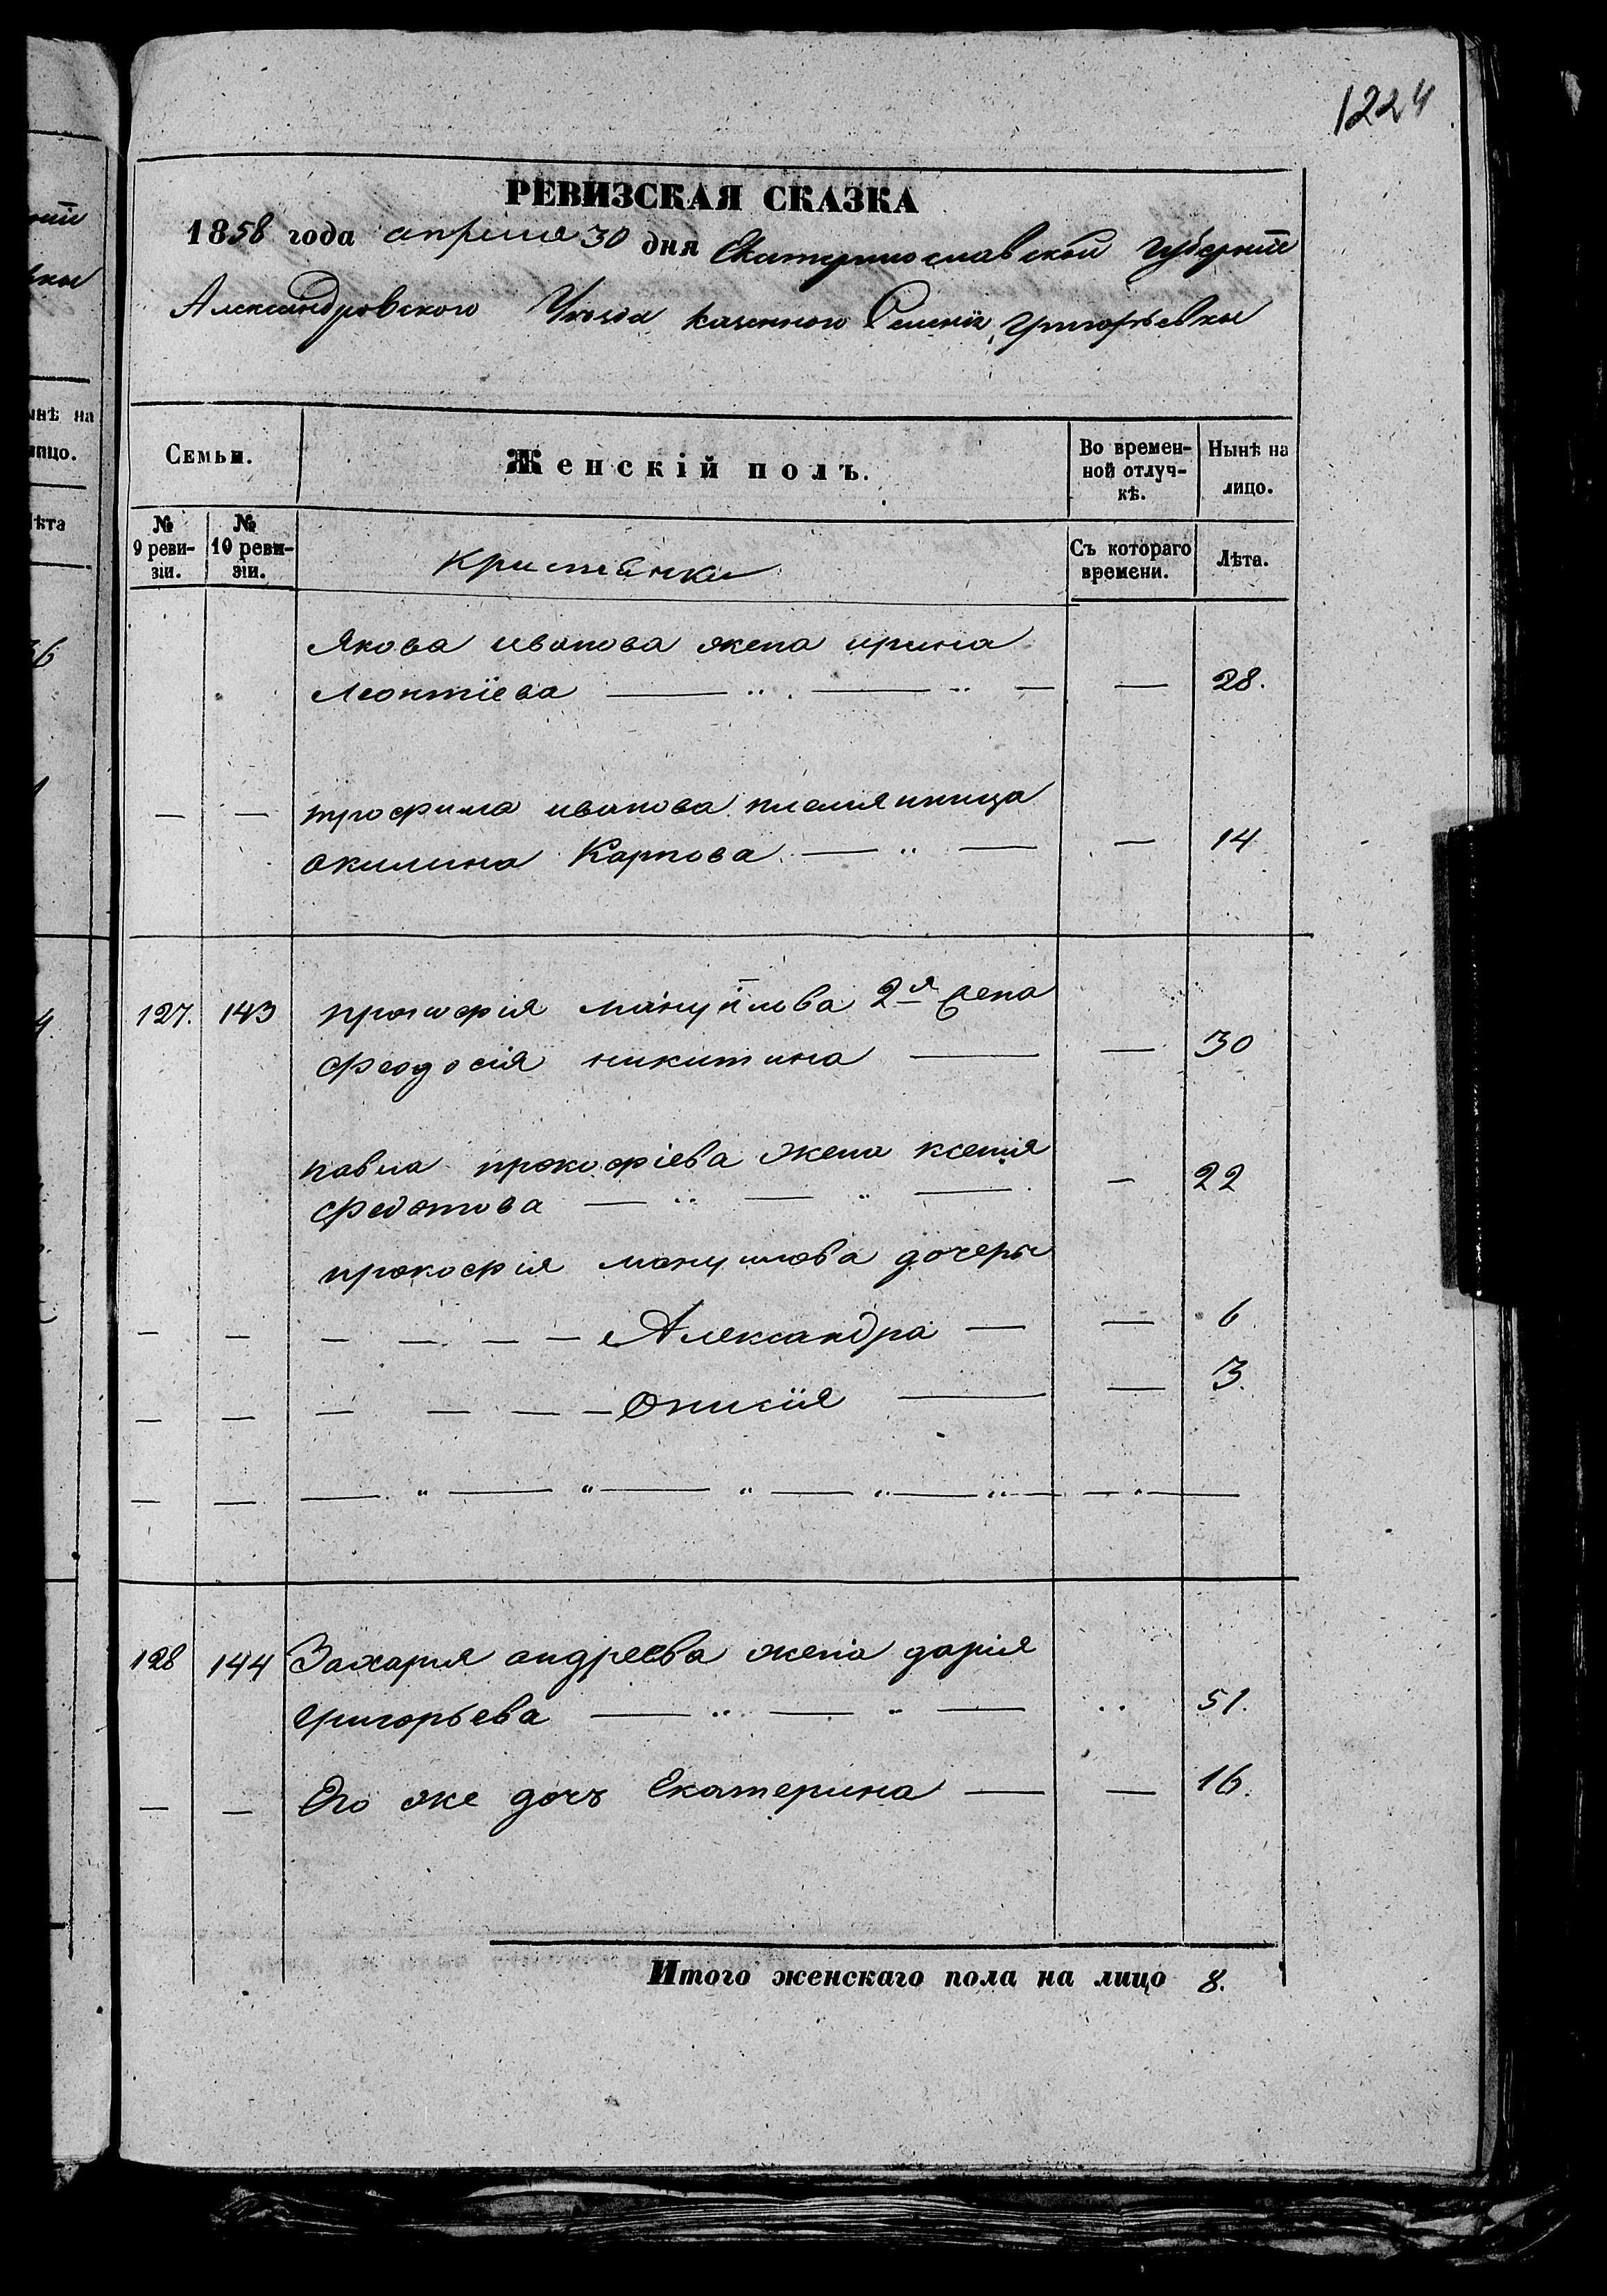 1224
РЕВИЗСКАЯ СКАЗКА
1858 года апреля 30 дня Екатеринославской Губернїи
Александровского Уезда Казенного Селенія Григорьевки
Семьи.
Женскій полъ.
Во времен-
ной отлуч-
кѣ.
Нынѣ на
лицо.
№
9 реви-
зіи.
№
10 реви-
зіи.
Кристянки
Съ котораго
времени.
Лѣта.
Якова иванова жена ирина
Леонтїева — " — " — — 28.
— — трофима иванова племянница
Акилина Карпова — " — — 14
127. 143 прокофія мануйлова 2я жена
феодосія никитина — — 30
павла прокофіева жена ксенія
федотова — " — " — — 22
прокофія мануилова дочеры
— — — — — — Александра — — 6
— — — — — — Анисїя — — 3.
— — — " — " — " — " — " — — " —
128 144 Захария андреева жена дария
григорьева — " — " — " 51.
— — Его же дочъ Екатерина — — 16.
Итого женскаго пола на лицо 8.
ынѣ на
лицо.
лѣта